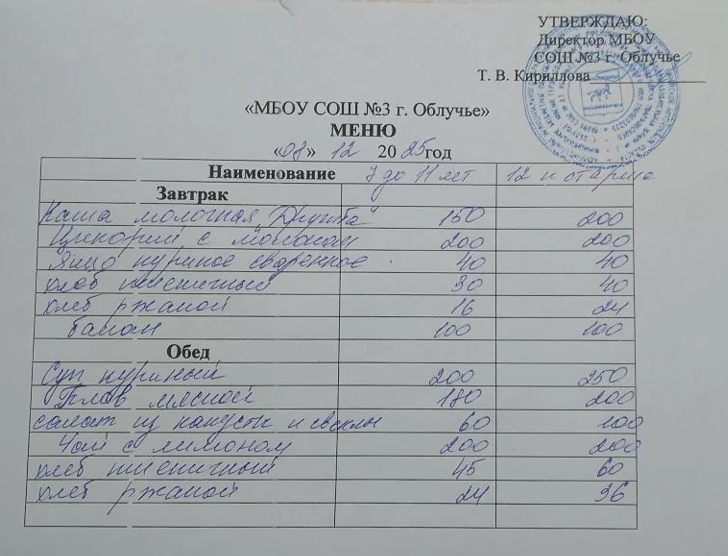 УТВЕРЖДАЮ:
Директор МБОУ
СОШ №3 г. Облучье
Т. В. Кириллова
«МБОУ СОШ №3 г. Облучье»
МЕНЮ
«08» 12 2025год
Наименование 7 до 11 лет 12 и старше
Завтрак
Каша молочная "Дружба" 150 200
Цикорий с молоком 200 200
Яйцо куриное сваренное 40 40
хлеб пшеничный 30 40
хлеб ржаной 16 24
банан 100 100
Обед
Суп куриный 200 250
Плов мясной 180 200
салат из капусты и свеклы 60 100
Чай с лимоном 200 200
хлеб пшеничный 45 60
хлеб ржаной 24 36